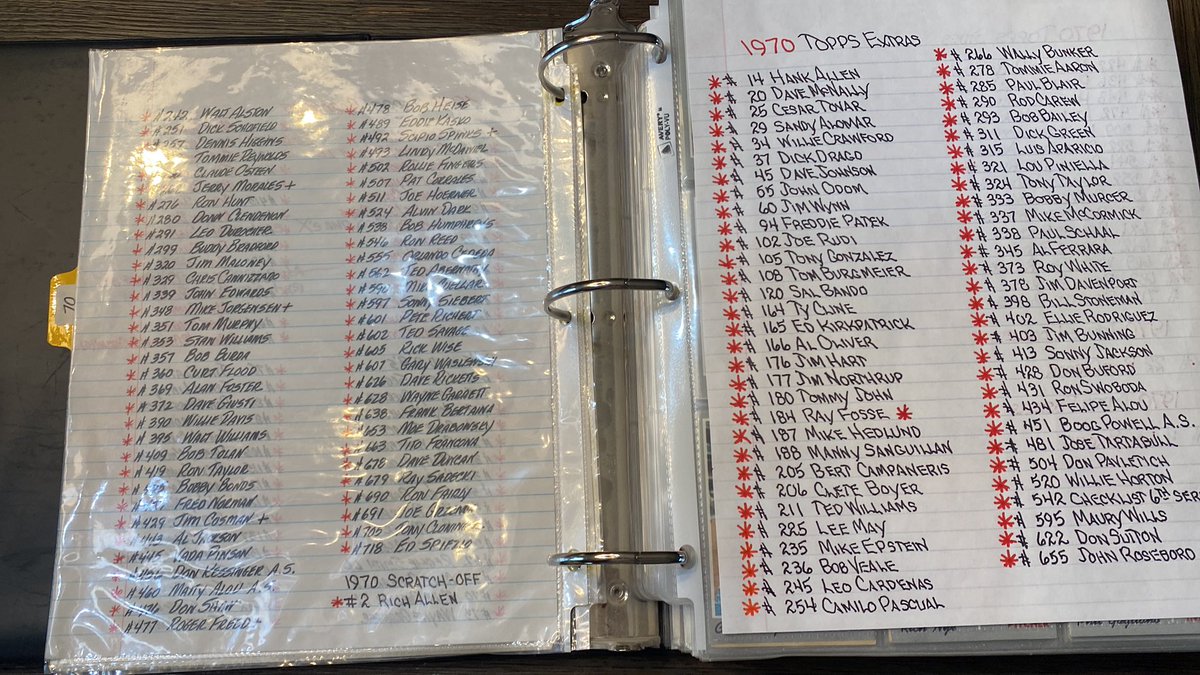 70
* #242 WALT ALSTON
* #251 DICK SCHOFIELD
* #257 DENNIS HIGGINS
TOMMIE REYNOLDS
CLAUDE OSTEEN
JERRY MORALES +
* #276 RON HUNT
* #280 DONN CLENDENON
* #291 LEO DUROCHER
* #299 BUDDY BRADFORD
* #320 JIM MALONEY
* #329 CHRIS CANNIZZARO
* #339 JOHN EDWARDS
* #348 MIKE JORGENSEN +
* #351 TOM MURPHY
* #353 STAN WILLIAMS
* #357 BOB BURDA
* #360 CURT FLOOD
* #369 ALAN FOSTER
* #372 DAVE GIUSTI
* #390 WILLIE DAVIS
* #395 WALT WILLIAMS
* #409 BOB TOLAN
* #419 RON TAYLOR
BOBBY BONDS
FRED NORMAN
* #429 JIM COSMAN +
* #443 AL JACKSON
* #445 VADA PINSON
DON KESSINGER A.S.
* #460 MATTY ALOU A.S.
* #476 DON SHAW
* #477 ROGER FREED +
* #478 BOB HEISE
* #489 EDDIE KASKO
* #492 SCIPIO SPINKS +
* #493 LINDY McDANIEL
* #502 ROLLIE FINGERS
* #507 PAT CORRALES
* #511 JOE HOERNER
* #524 ALVIN DARK
* #538 BOB HUMPHREYS
* #546 RON REED
* #555 ORLANDO CEPEDA
* #562 TED ABERNATHY
* #590 MIKE CUELLAR
* #597 SONNY SIEBERT
* #601 PETE RICHERT
* #602 TED SAVAGE
* #605 RICK WISE
* #607 GARY WASLEWSKI
* #626 DAVE RICKETTS
* #628 WAYNE GARRETT
* #638 FRANK BERTAINA
* #653 MOE DRABOWSKY
* #663 TITO FRANCONA
* #678 DAVE DUNCAN
* #679 RAY SADECKI
* #690 RON FAIRLY
* #691 JOE
TONY CLONINGER
* #718 ED SPIEZIO
1970 SCRATCH-OFF
* #2 RICH ALLEN
AVERY®
POLY-VU
1970 TOPPS EXTRAS
* # 14 HANK ALLEN
* # 20 DAVE McNALLY
* # 25 CESAR TOVAR
* # 29 SANDY ALOMAR
* # 34 WILLIE CRAWFORD
* # 37 DICK DRAGO
* # 45 DAVE JOHNSON
* # 55 JOHN ODOM
* # 60 JIM WYNN
* # 94 FREDDIE PATEK
* # 102 JOE RUDI
* # 105 TONY GONZALEZ
* # 108 TOM BURGMEIER
* # 120 SAL BANDO
* # 164 TY CLINE
* # 165 ED KIRKPATRICK
* # 166 AL OLIVER
* # 176 JIM HART
* # 177 JIM NORTHRUP
* # 180 TOMMY JOHN
* # 184 RAY FOSSE *
* # 187 MIKE HEDLUND
* # 188 MANNY SANGUILLAN
* # 205 BERT CAMPANERIS
* # 206 CLETE BOYER
* # 211 TED WILLIAMS
* # 225 LEE MAY
* # 235 MIKE EPSTEIN
* # 236 BOB VEALE
* # 245 LEO CARDENAS
* # 254 CAMILO PASCUAL
* # 266 WALLY BUNKER
* # 278 TOMMIE AARON
* # 285 PAUL BLAIR
* # 290 ROD CAREW
* # 293 BOB BAILEY
* # 311 DICK GREEN
* # 315 LUIS APARICIO
* # 321 LOU PINIELLA
* # 324 TONY TAYLOR
* # 333 BOBBY MURCER
* # 337 MIKE McCORMICK
* # 338 PAUL SCHAAL
* # 345 AL FERRARA
* # 373 ROY WHITE
* # 378 JIM DAVENPORT
* # 398 BILL STONEMAN
* # 402 ELLIE RODRIGUEZ
* # 403 JIM BUNNING
* # 413 SONNY JACKSON
* # 428 DON BUFORD
* # 431 RON SWOBODA
* # 434 FELIPE ALOU
* # 451 BOOG POWELL A.S.
* # 481 JOSE TARTABULL
* # 504 DON PAVLETICH
* # 520 WILLIE HORTON
* # 542 CHECKLIST 6TH SER
* # 595 MAURY WILLS
* # 622 DON SUTTON
* # 655 JOHN ROSEBORO